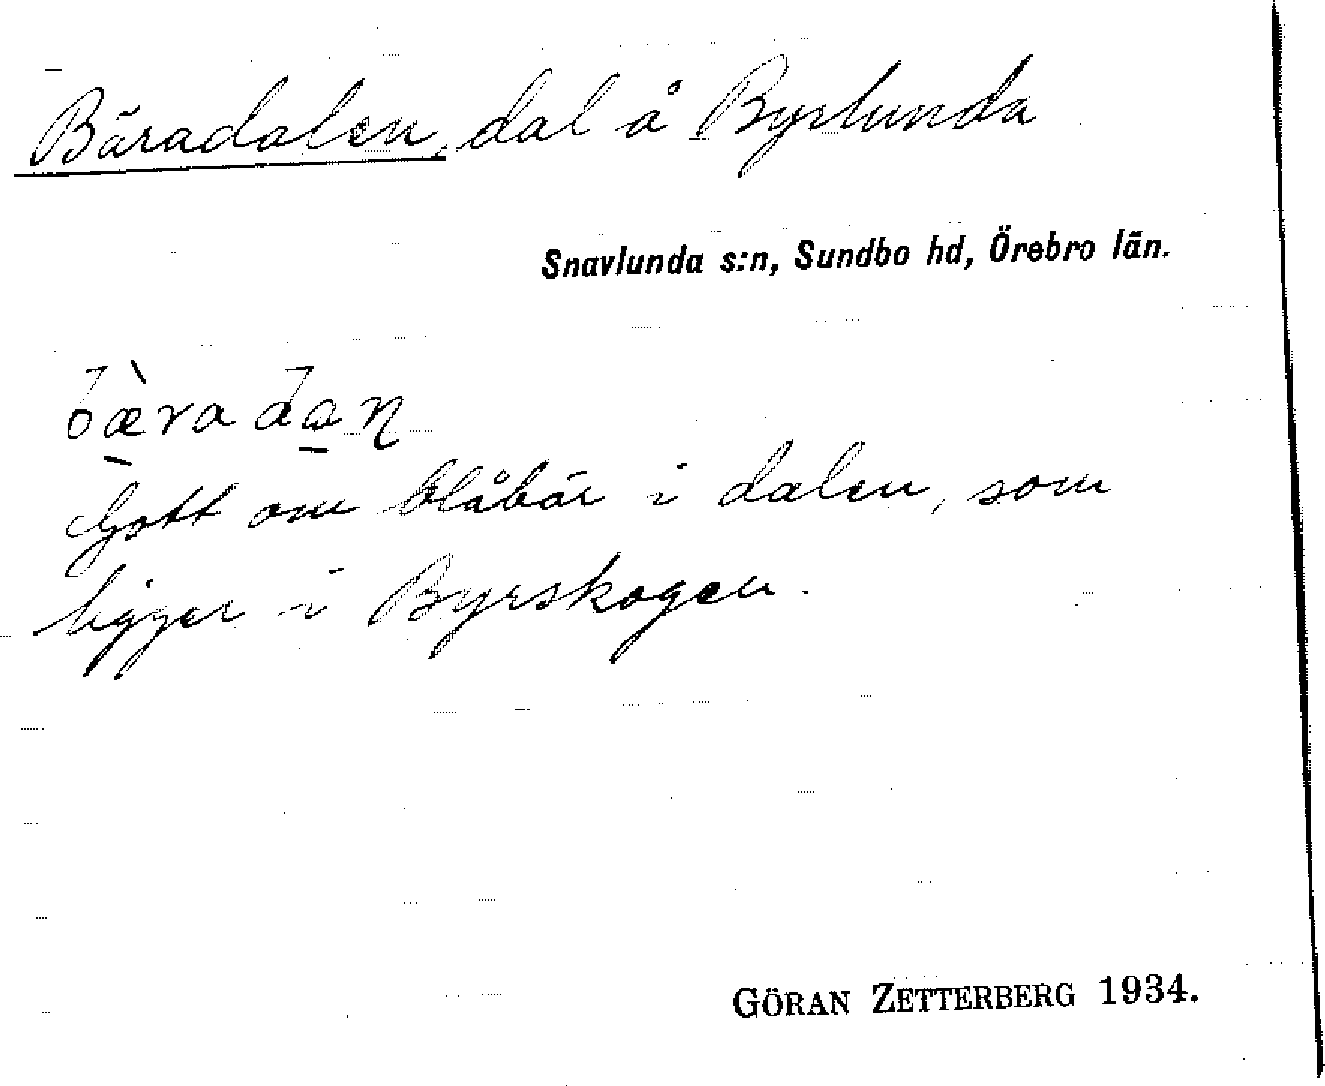 Bäradalen, dal å Byrlunda
Snavlunda s:n, Sundbo hd, Örebro län.
bæ̀radaɳ
Gott om blåbär i dalen, som
ligger i Byrskogen.
GÖRAN ZETTERBERG 1934.